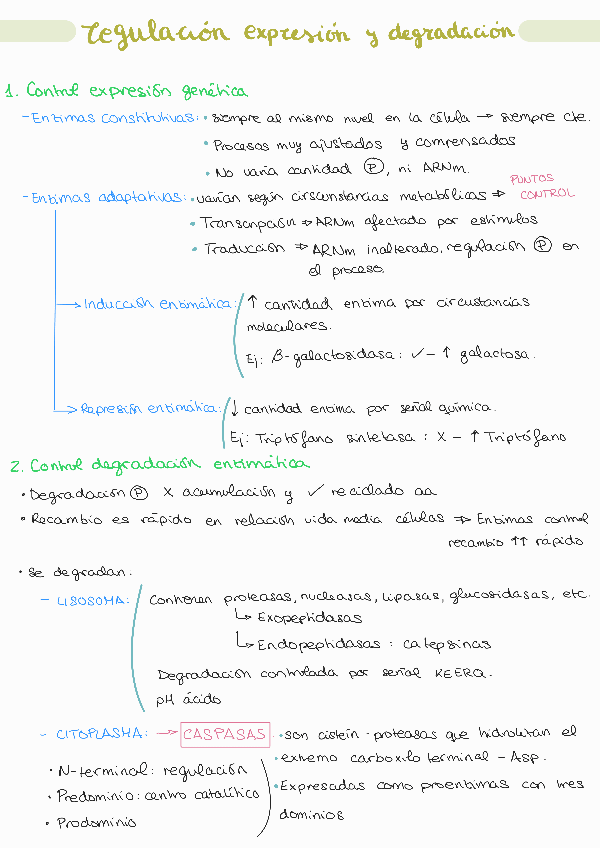 regulación expresión y degradación
1. Control expresión genética
- Enzimas constitutivas: • siempre al mismo nivel en la célula → siempre cte.
• Procesos muy ajustados y compensados
• No varia cantidad Ⓟ, ni ARNm.
- Enzimas adaptativas: • varían según circunstancias metabólicas ⇒ PUNTOS CONTROL
• Transcripción ⇒ ARNm afectado por estímulos
• Traducción ⇒ ARNm inalterado, regulación Ⓟ en
el proceso.
→ Inducción enzimática: ↑ cantidad enzima por circustancias
moleculares.
Ej: β-galactosidasa: ✓ – ↑ galactosa.
→ Represión enzimática: ↓ cantidad enzima por señal química.
Ej: Triptófano sintetasa: X – ↑ Triptófano
2. Control degradación enzimática
• Degradación Ⓟ X acumulación y ✓ reciclado aa
• Recambio es rápido en relación vida media células ⇒ Enzimas control
recambio ↑↑ rápido
• Se degradan:
- LISOSOMA: Contienen proteasas, nucleasas, lipasas, glucosidasas, etc.
↳ Exopeptidasas
↳ Endopeptidasas: catepsinas
Degradación controlada por señal KFERQ.
pH ácido
- CITOPLASMA: → CASPASAS • son cistein-proteasas que hidrolizan el
• extremo carboxilo terminal - Asp.
• N-terminal: regulación
• Predominio: centro catalítico
• Prodominio
• Expresadas como proenzimas con tres
dominios